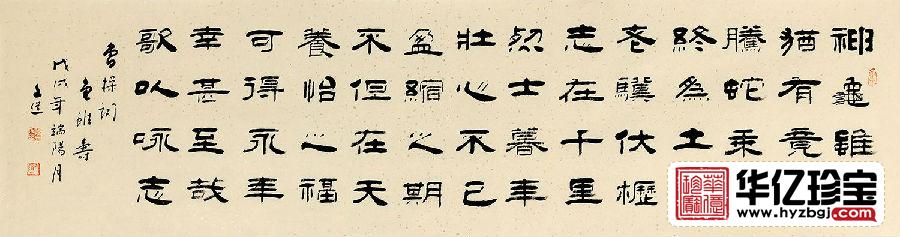 神龜雖
猶有竟
騰蛇乘
終為土
老驥伏櫪
志在千里
烈士暮年
壯心不已
盈縮之期
不但在天
養怡之福
可得永年
幸甚至哉
歌以咏志
曹操詞
龜雖壽
戊戌年端陽月
华亿珍宝
www.hyzbgj.com